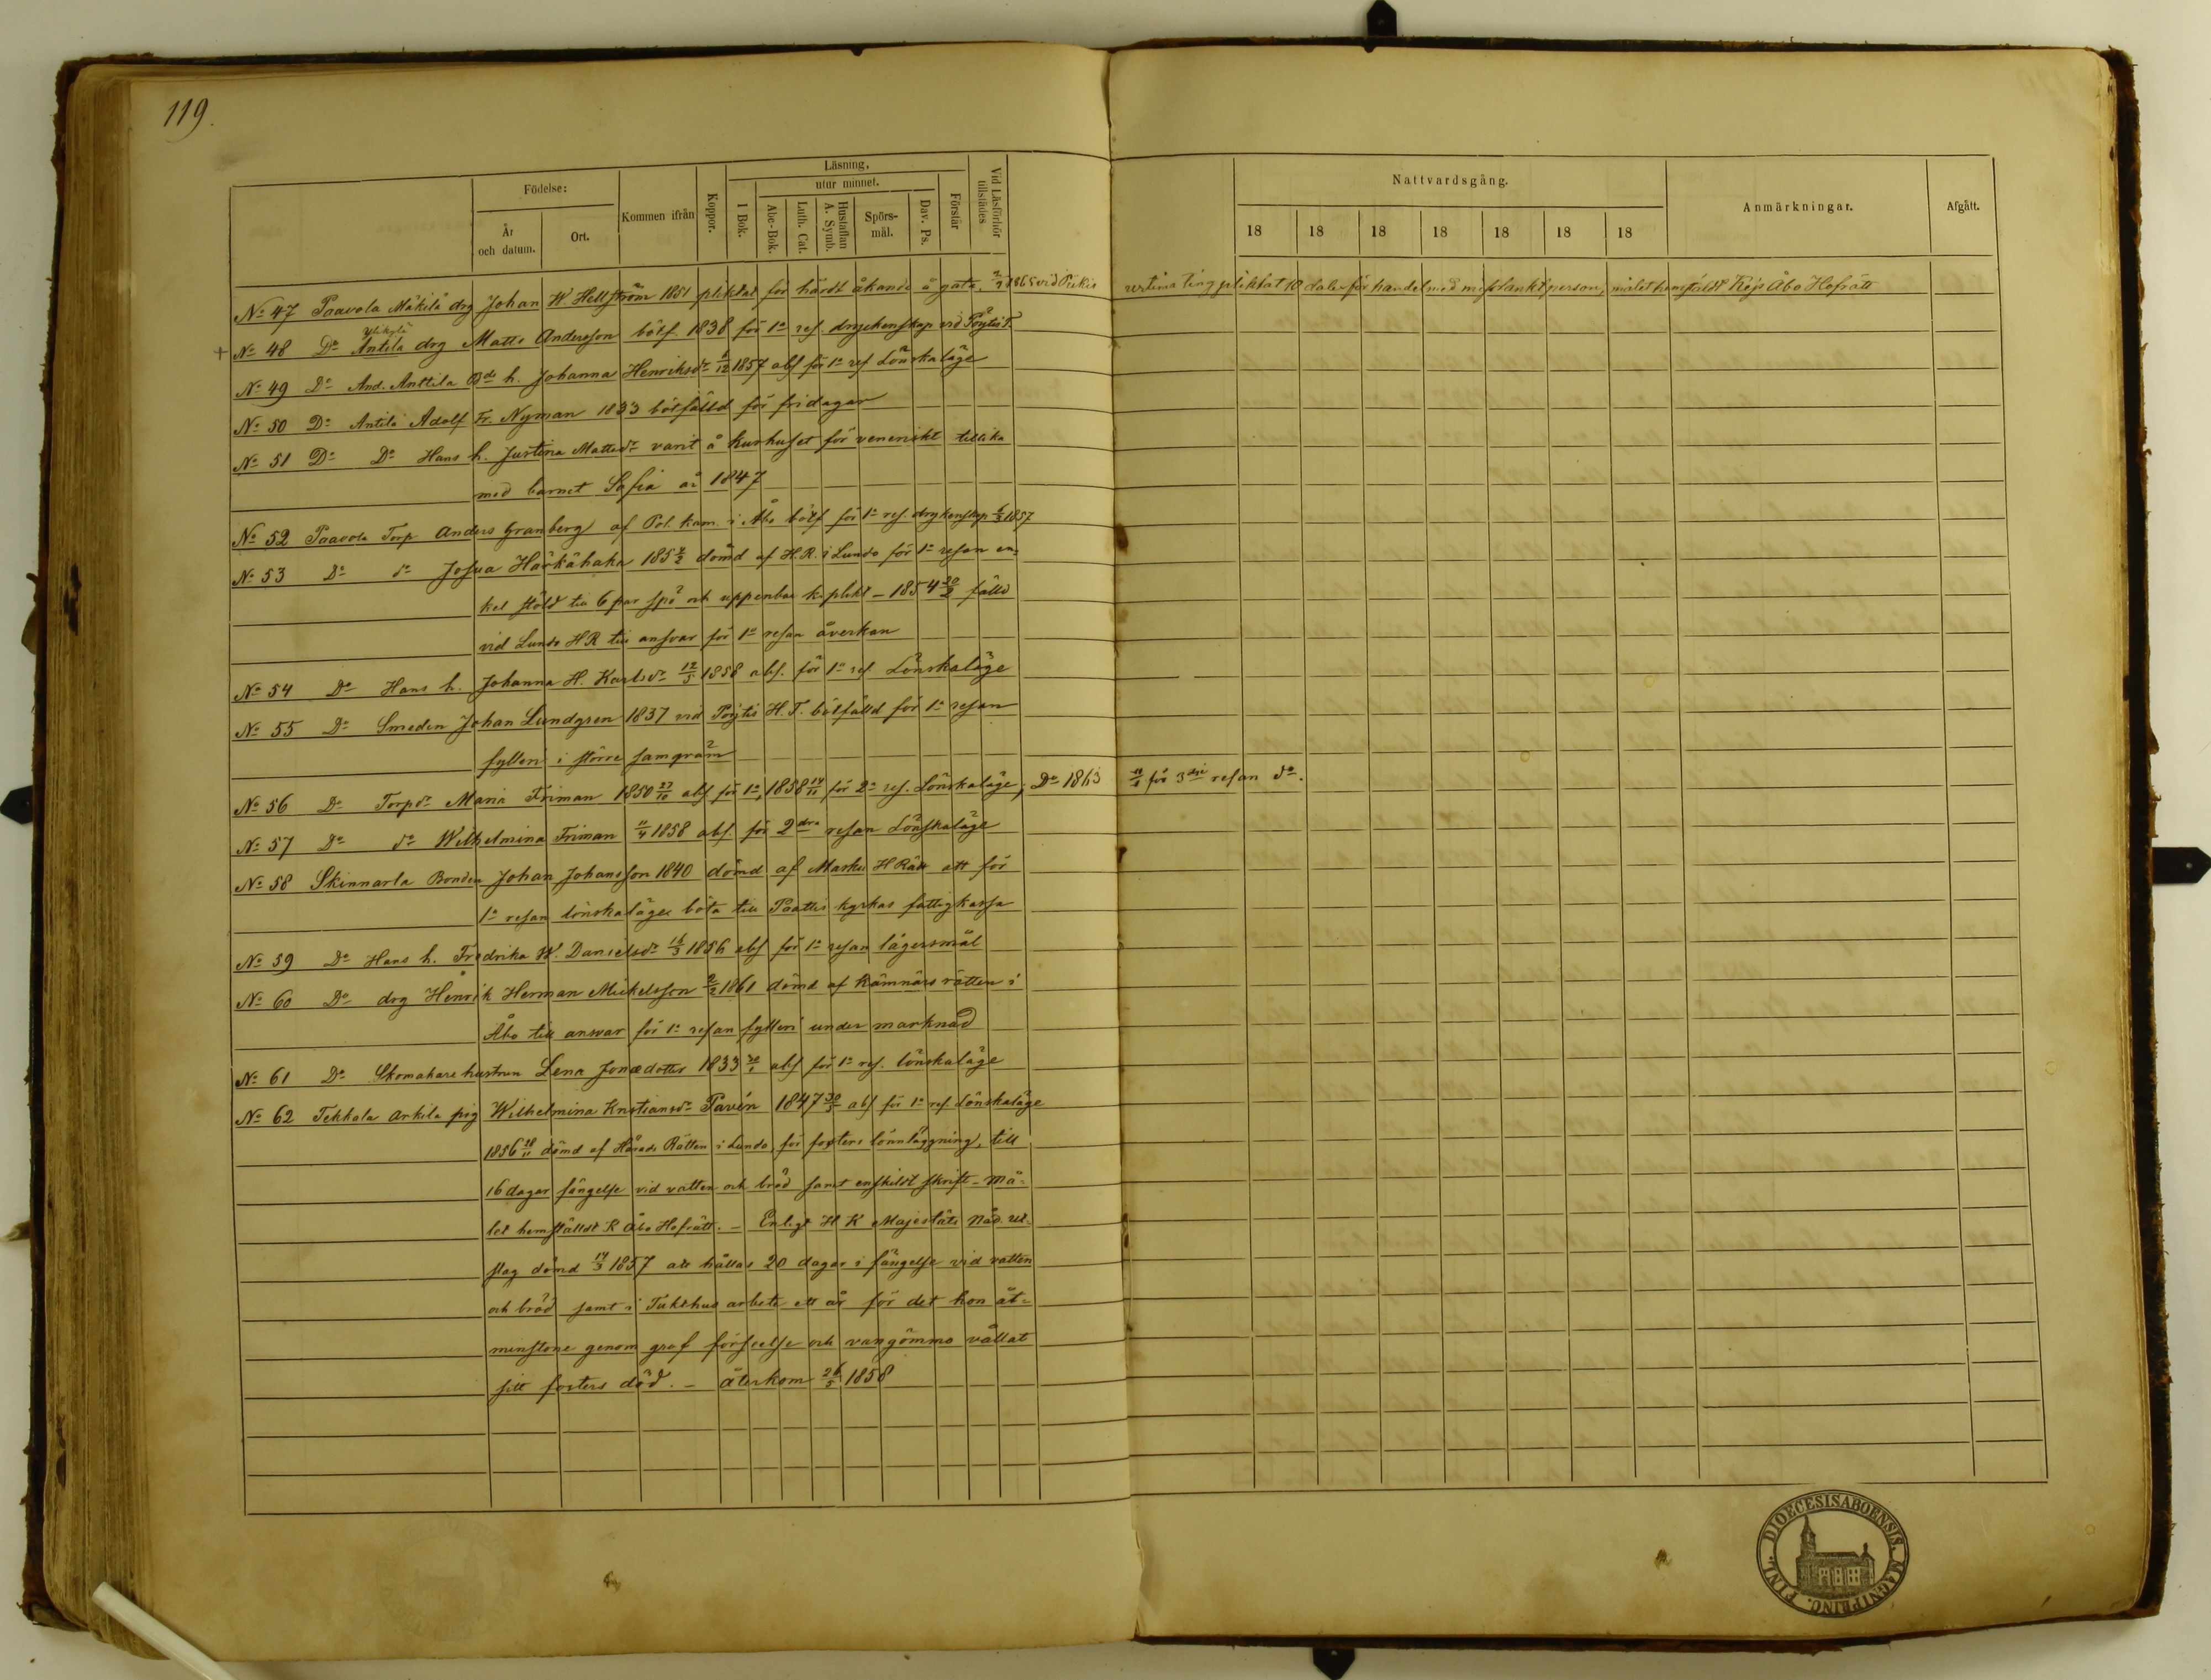 119.
Födelse:
År och datum.
Ort.
Kommen ifrån
Koppor.
Läsning,
utur minnet.
I Bok.
Abc-Bok.
Luth. Cat.
Hustaflan A. Symb.
Spörs-mål.
Dav. Ps.
Förstår
Vid Läsförhör tillstädes
Nattvardsgång.
18 18 18 18 18 18 18
Anmärkningar.
Afgått.
No 47 Paavola Mäkilä drg Johan W. Hellström 1851 pliktat för hårdt åkande å gata, 1865 vid Pikis urtima ting pliktat 10 daler för handel med person, målet hemstäldt Kejs Åbo Hofrätt
No 48 Do Antila drg Matts Andersson bötf. 1838 för 1a res. dryckenskap vid Pöytis T.
No 49 Do And. Anttila Bde h. Johanna Henriksdr 1/12 1857 abs för 1a res Lönskaläge
No 50 Do Antila Adolf Fr. Nyman 1833 bötfälld för fridagar
No 51 Do Do Hans h. Justina Mattsdr varit å kurhuset för veneriskt tillika
med barnet Sofia år 1847
No 52 Paavola Torp Anders Granberg af Pol. kam. i Åbo bötf för 1a res. drykenskap 1857
No 53 Do do Josua Härkähaka 185 dömd af H.R. i Lundo för 1a resan en-
kel stöld till 6 par spö och uppenbar k. plikt – 1854 fälld
vid Lundo HR till ansvar för 1a resan åverkan
No 54 Do Hans h. Johanna H. Karlsdr 12/5 1858 abs. för 1a res Lönskaläge
No 55 Do Smeden Johan Lundgren 1837 vid Pöytis H.T. bötfälld för 1a resan
fylleri i större samqväm
No 56 Do Torpdr Maria Friman 1850 27/10 abs för 1a, 1858 14/11 för 2a res. Lönskaläge, Do 1863 för 3dje resan do.
No 57 Do do Wilhelmina Friman 11/4 1858 abs. för 2dra resan Lönskaläge
No 58 Skinnarla Bonden Johan Johansson 1840 dömd af Masku H Rätt att för
1a resan lönskaläge böta till Paattis kyrkas fattigkassa
No 59 Do Hans h. Fredrika W. Danielsdr 16/3 1856 abs för 1a resan lägersmål
No 60 Do drg Henrik Herman Mickelsson 2/2 1861 dömd af Kämnärs rätten i
Åbo till ansvar för 1a resan fylleri under marknad
No 61 Do Skomakare hustrun Lena Jonædotter 1833 abs för 1a res. lönskaläge
No 62 Tekkala Arkila pig Wilhelmina Kristiansdr Pavén 1847 30/5 abs för 1a res Lönskaläge
1856 28/11 dömd af Härads Rätten i Lundo, för fosters lönnläggning, till
16 dagar fängelse vid vatten och bröd samt enskildt skrift – Må-
let hemställdt K Åbo Hofrätt. – Enligt H K Majestäts Nåd. ut-
slag dömd 14/3 1857 att hållas 20 dagar i fängelse vid vatten
och bröd samt i Tukthus arbete ett år för det hon åt-
minstone genom grof förseelse och vangömmo vållat
sitt fosters död. – återkom 26/5 1858
FINL. DIOECESIS ABOENSIS. MAGNI PRINC.